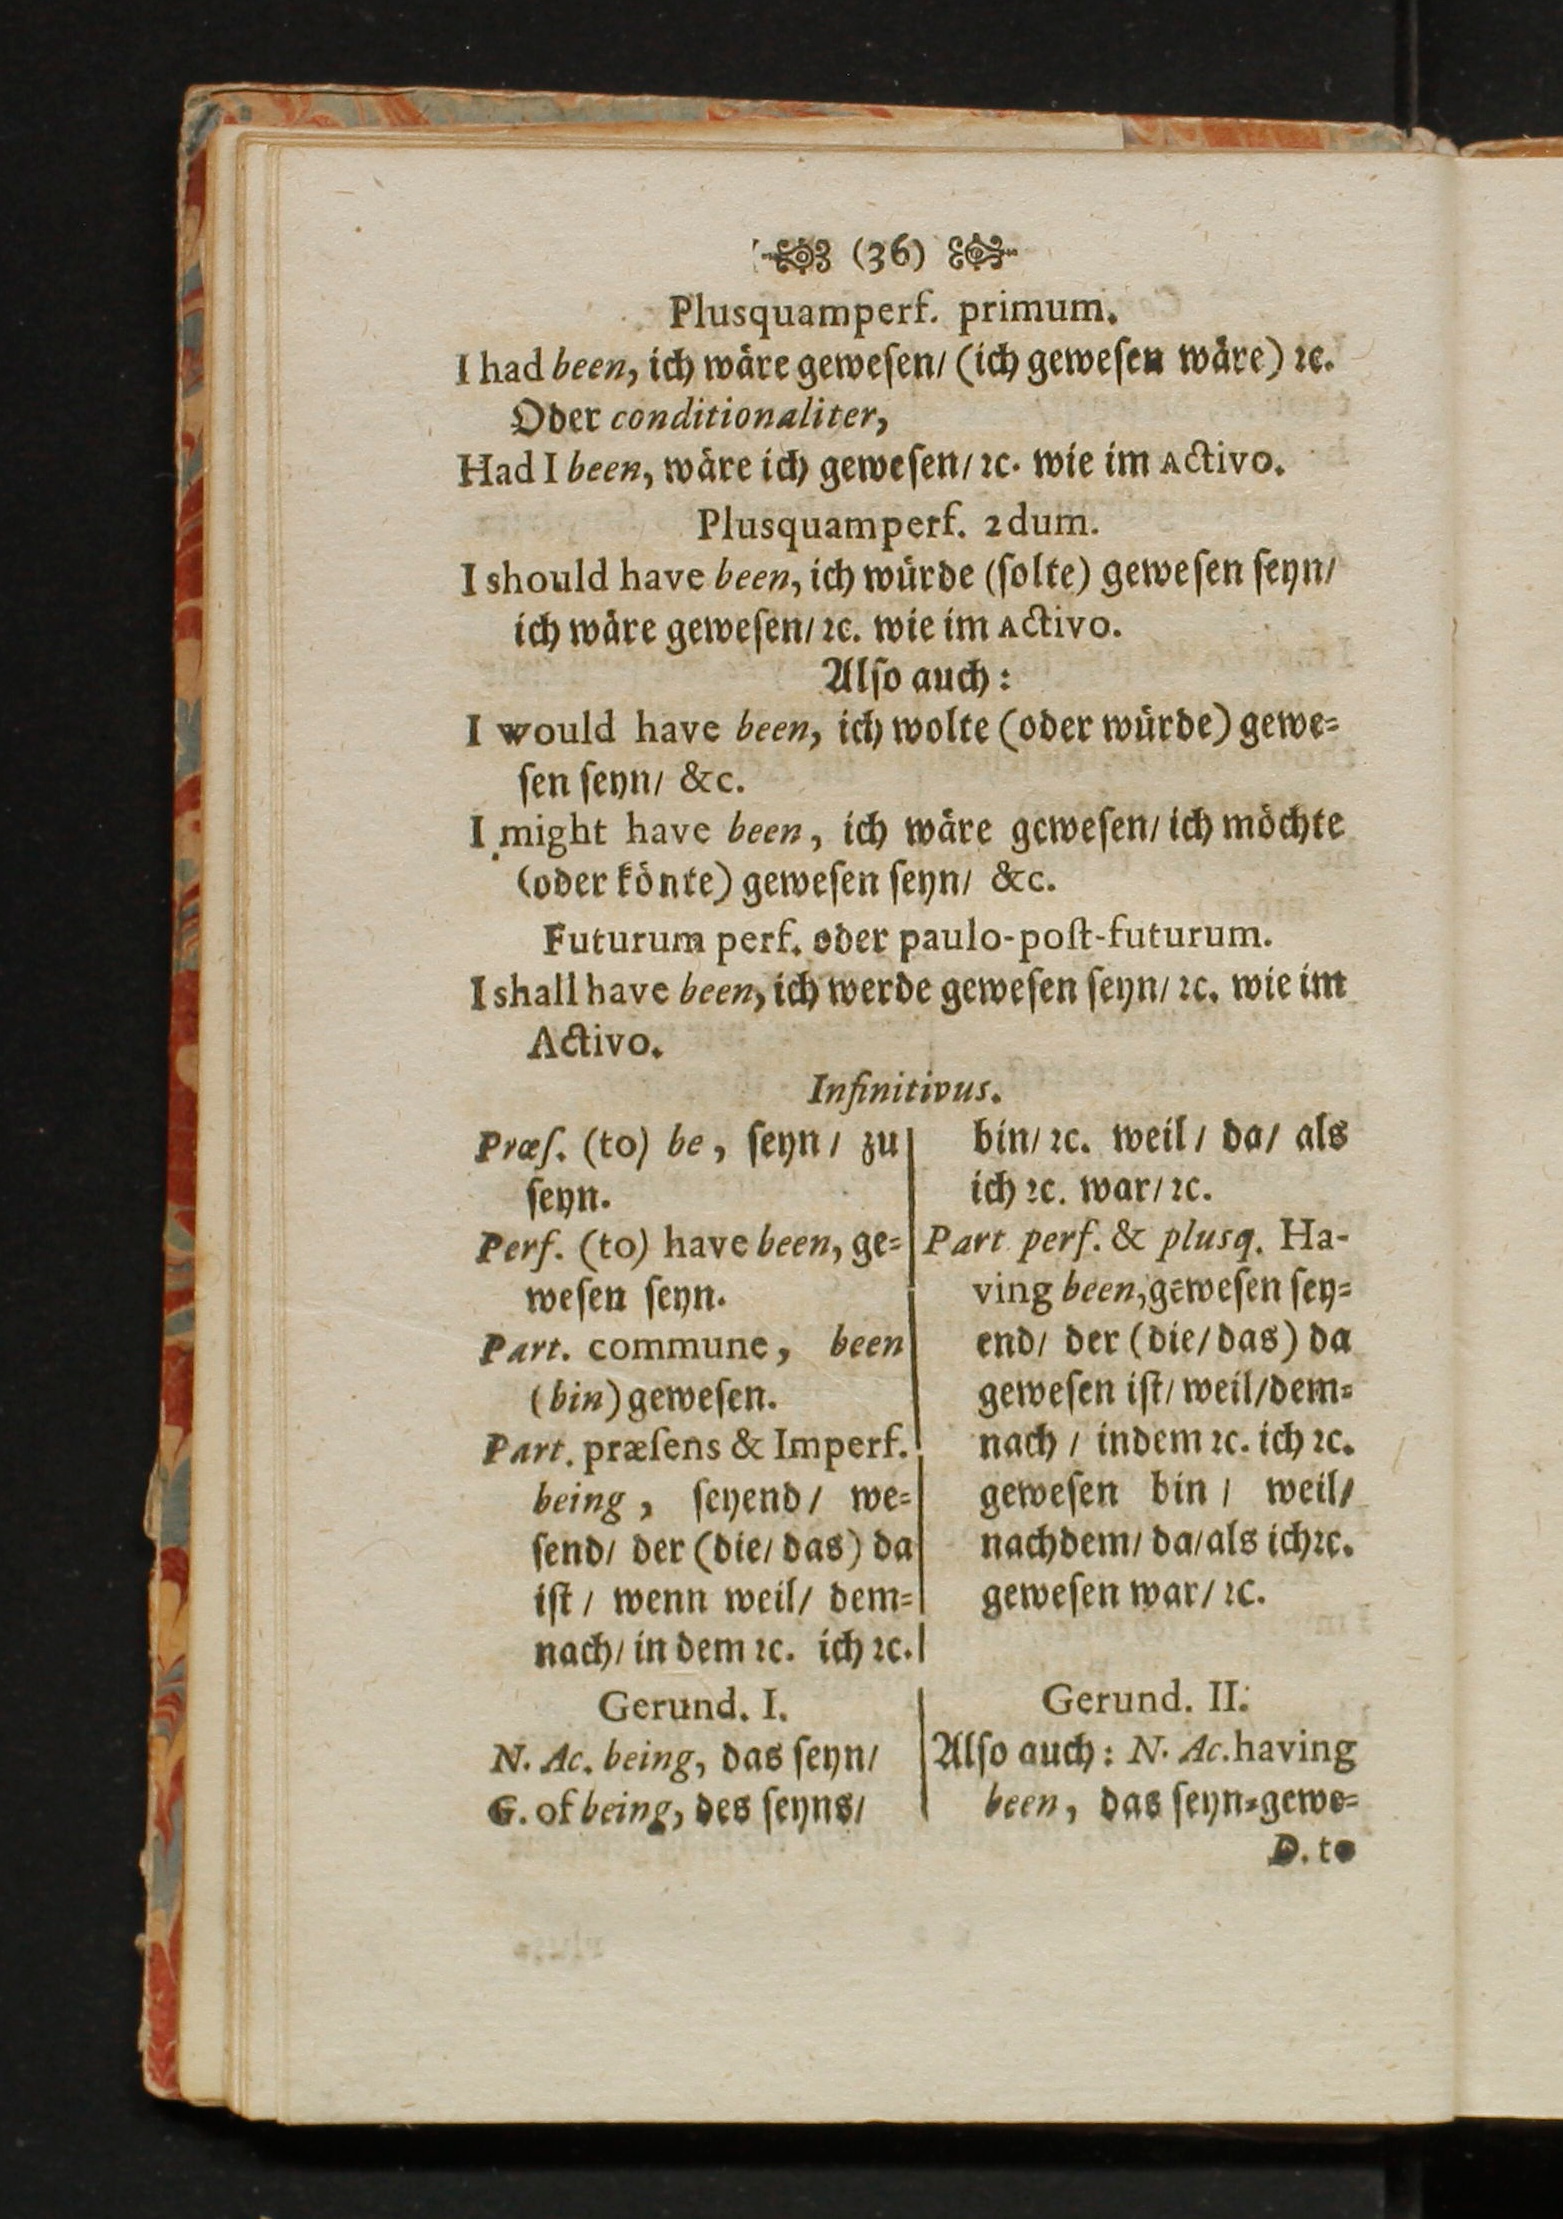 (36)
Plusquamperf. primum.
I had been, ich wåre geweſen/ (ich geweſen wåre) ꝛc.
Oder conditionaliter,
Had I been, wåre ich geweſen/ ꝛc. wie im Activo.
Plusquamperf. 2dum.
I should have been, ich wůrde (ſolte) geweſen ſeyn/
ich wåre geweſen/ ꝛc. wie im Activo.
Alſo auch:
I would have been, ich wolte (oder wůrde) gewe=
ſen ſeyn/ &c.
I might have been, ich wåre geweſen/ ich mŏchte
(oder kŏnte) geweſen ſeyn/ &c.
Futurum perf. oder paulo-poſt-futurum.
I shall have been, ich werde geweſen ſeyn/ ꝛc. wie im
Activo.
Infinitivus.
Præſ. (to) be, ſeyn/ zu
ſeyn.
Perf. (to) have been, ge=
weſen ſeyn.
Part. commune, been
(bin) geweſen.
Part. præſens & Imperf.
being, ſeyend/ we=
ſend/ der (die/ das) da
iſt/ wenn weil/ dem=
nach/ in dem ꝛc. ich ꝛc.
bin/ ꝛc. weil/ da/ als
ich ꝛc. war/ ꝛc.
Part perf. & plusq. Ha-
ving been, geweſen ſey=
end/ der (die/ das) da
geweſen iſt/ weil/ dem=
nach/ indem ꝛc. ich ꝛc.
geweſen bin/ weil/
nachdem/ da/ als ich ꝛc.
geweſen war/ ꝛc.
Gerund. I.
N. Ac. being, das ſeyn/
G. of being, des ſeyns/
Gerund. II.
Alſo auch: N. Ac. having
been, das ſeyn=gewe=
D. to